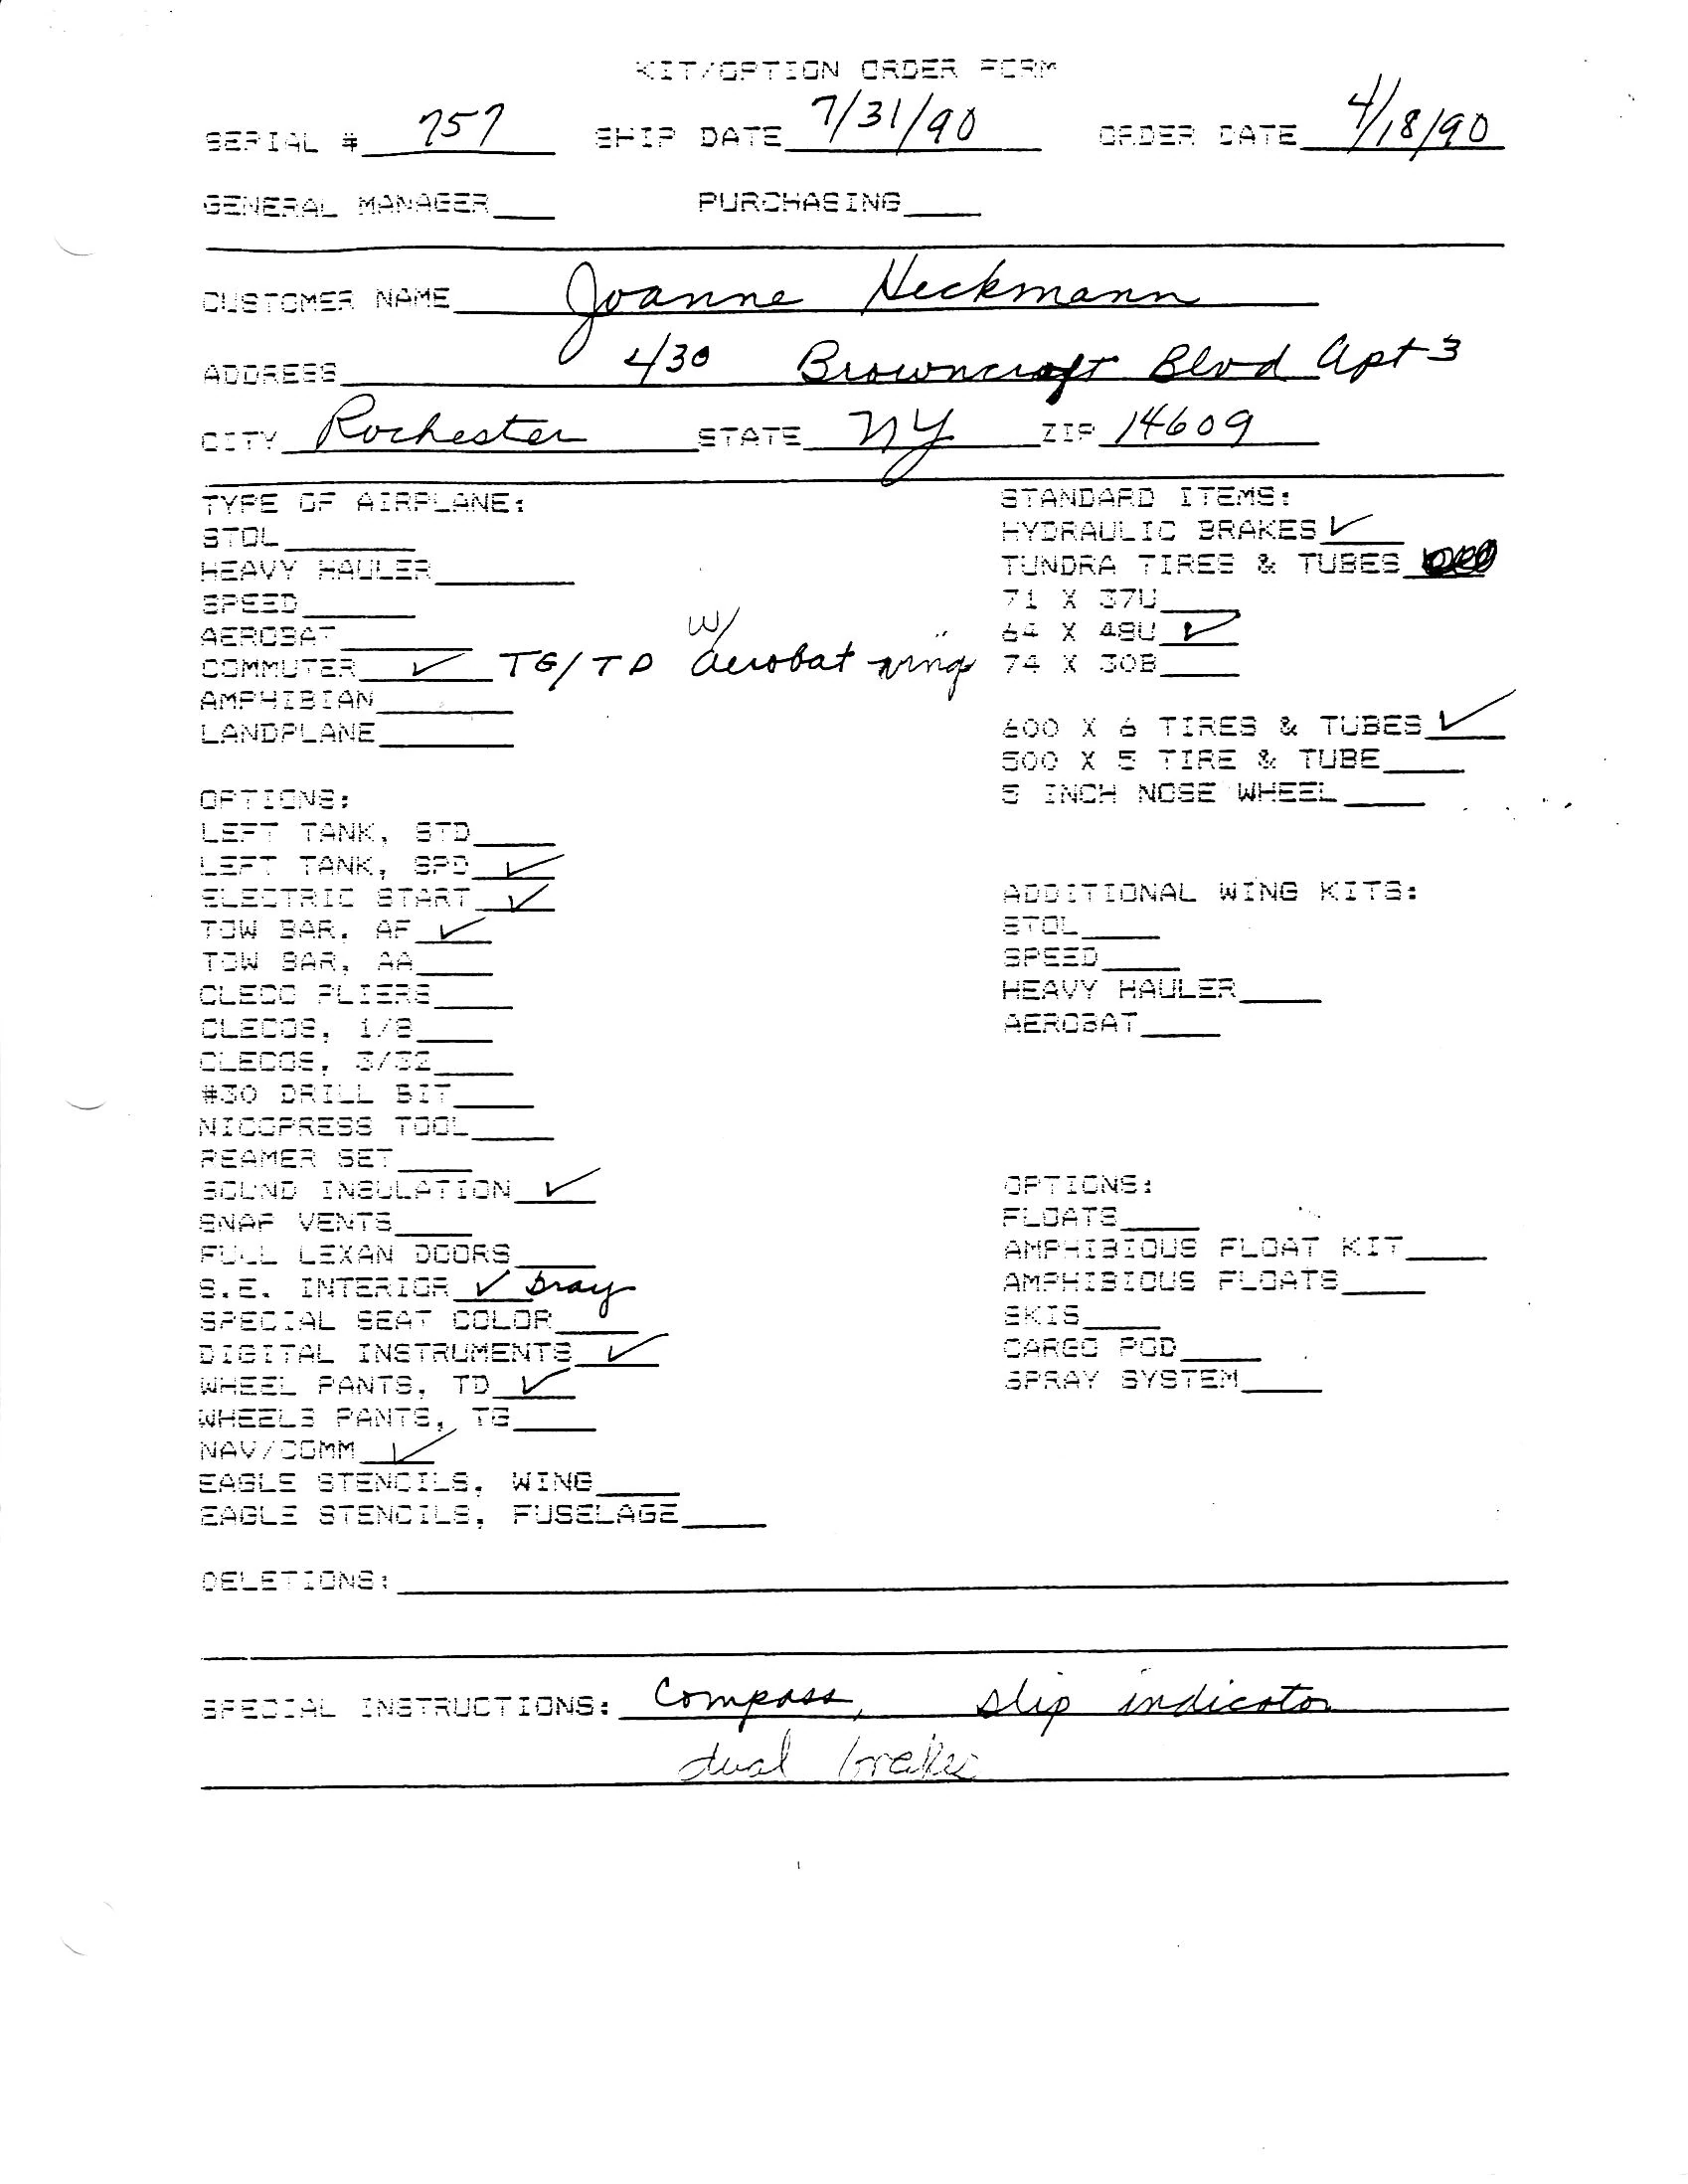 KIT/OPTION ORDER FORM
SERIAL # 757 SHIP DATE 7/31/90 ORDER DATE 4/18/90
GENERAL MANAGER PURCHASING
CUSTOMER NAME Joanne Heckmann
ADDRESS 430 Browncroft Blvd Apt 3
CITY Rochester STATE NY ZIP 14609
TYPE OF AIRPLANE:
STOL
HEAVY HAULER
SPEED
AEROBAT
COMMUTER ✓ TG/TD w/ aerobat wing
AMPHIBIAN
LANDPLANE
STANDARD ITEMS:
HYDRAULIC BRAKES ✓
TUNDRA TIRES & TUBES
71 X 37U
64 X 48U ✓
74 X 30B
600 X 6 TIRES & TUBES ✓
500 X 5 TIRE & TUBE
5 INCH NOSE WHEEL
OPTIONS:
LEFT TANK, STD
LEFT TANK, SPD ✓
ELECTRIC START ✓
TOW BAR, AF ✓
TOW BAR, AA
CLECO PLIERS
CLECOS, 1/8
CLECOS, 3/32
#30 DRILL BIT
NICOPRESS TOOL
REAMER SET
SOUND INSULATION ✓
SNAP VENTS
FULL LEXAN DOORS
S.E. INTERIOR ✓ Gray
SPECIAL SEAT COLOR
DIGITAL INSTRUMENTS ✓
WHEEL PANTS, TD ✓
WHEELS PANTS, TG
NAV/COMM ✓
EAGLE STENCILS, WING
EAGLE STENCILS, FUSELAGE
ADDITIONAL WING KITS:
STOL
SPEED
HEAVY HAULER
AEROBAT
OPTIONS:
FLOATS
AMPHIBIOUS FLOAT KIT
AMPHIBIOUS FLOATS
SKIS
CARGO POD
SPRAY SYSTEM
DELETIONS:
SPECIAL INSTRUCTIONS: Compass, slip indicator
dual brakes